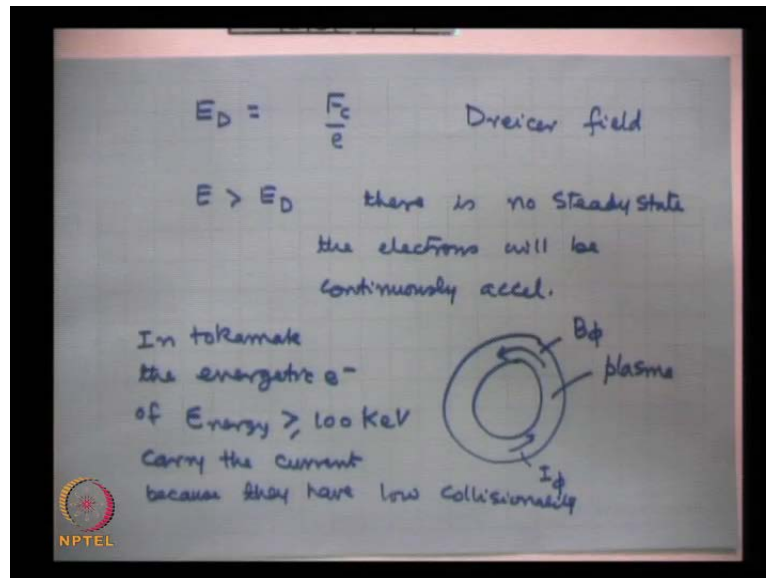 E_D = F_c / e Dreicer field
E > E_D there is no Steady State
the electrons will be
continuously accel.
In tokamak
the energetic e⁻
of Energy ≥ 100 KeV
carry the current
because they have low collisionality
Bφ
plasma
Iφ
NPTEL